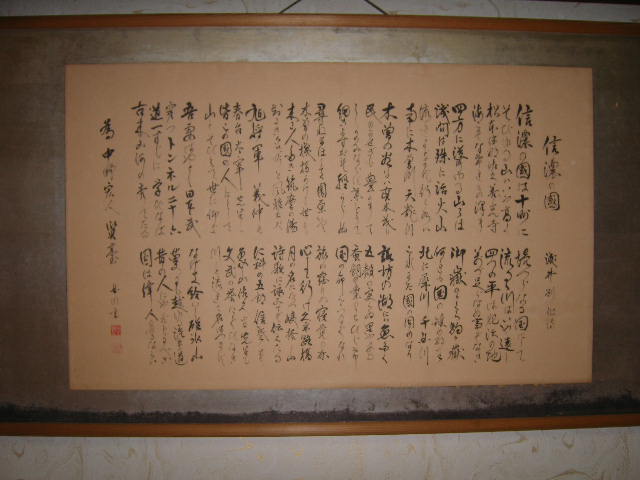 信濃の国
浅井洌 作詩
信濃の国は十州に 境つらなる国にして
そびゆる山はいや高く 流るる川はいや遠し
松本伊那佐久善光寺 四つの平は肥沃の地
海こそなけれ物さわに 万ず足らわぬ事ぞなき
四方に聳ゆる山々は 御嶽乗鞍駒ヶ嶽
浅間は殊に活火山 何れも国の鎮めなり
流れ淀まずゆく水は 北に犀川千曲川
南に木曽川天竜川 これまた国の固めなり
木曽の谷には真木茂り 諏訪の湖には魚多く
民のかせぎも豊かにて 五穀の実らぬ里やある
しかのみならず桑とりて 蚕飼いの業の打ちひらけ
細きよすがも軽からぬ 国の命を繋ぐなり
尋ねまほしき園原や 旅の宿りの寝覚の床
木曽の桟かけし世も 心して行け久米路橋
くる人多き筑摩の湯 月の名にたつ姨捨山
しるき名所と風雅士が 詩歌に詠みてぞ伝えたる
旭将軍義仲も 仁科の五郎信盛も
春台太宰先生も 象山佐久間先生も
皆此国の人にして 文武の誉たぐいなく
山と聳えて世に仰ぎ 川と流れて名は尽きず
吾妻はやとし日本武 なげき給いし碓氷山
穿つトンネル二十六 夢にも越ゆる汽車の道
道一すじに学びなば 昔の人にや劣るべき
古来山河の秀でたる 国は偉人のある習い
為中村